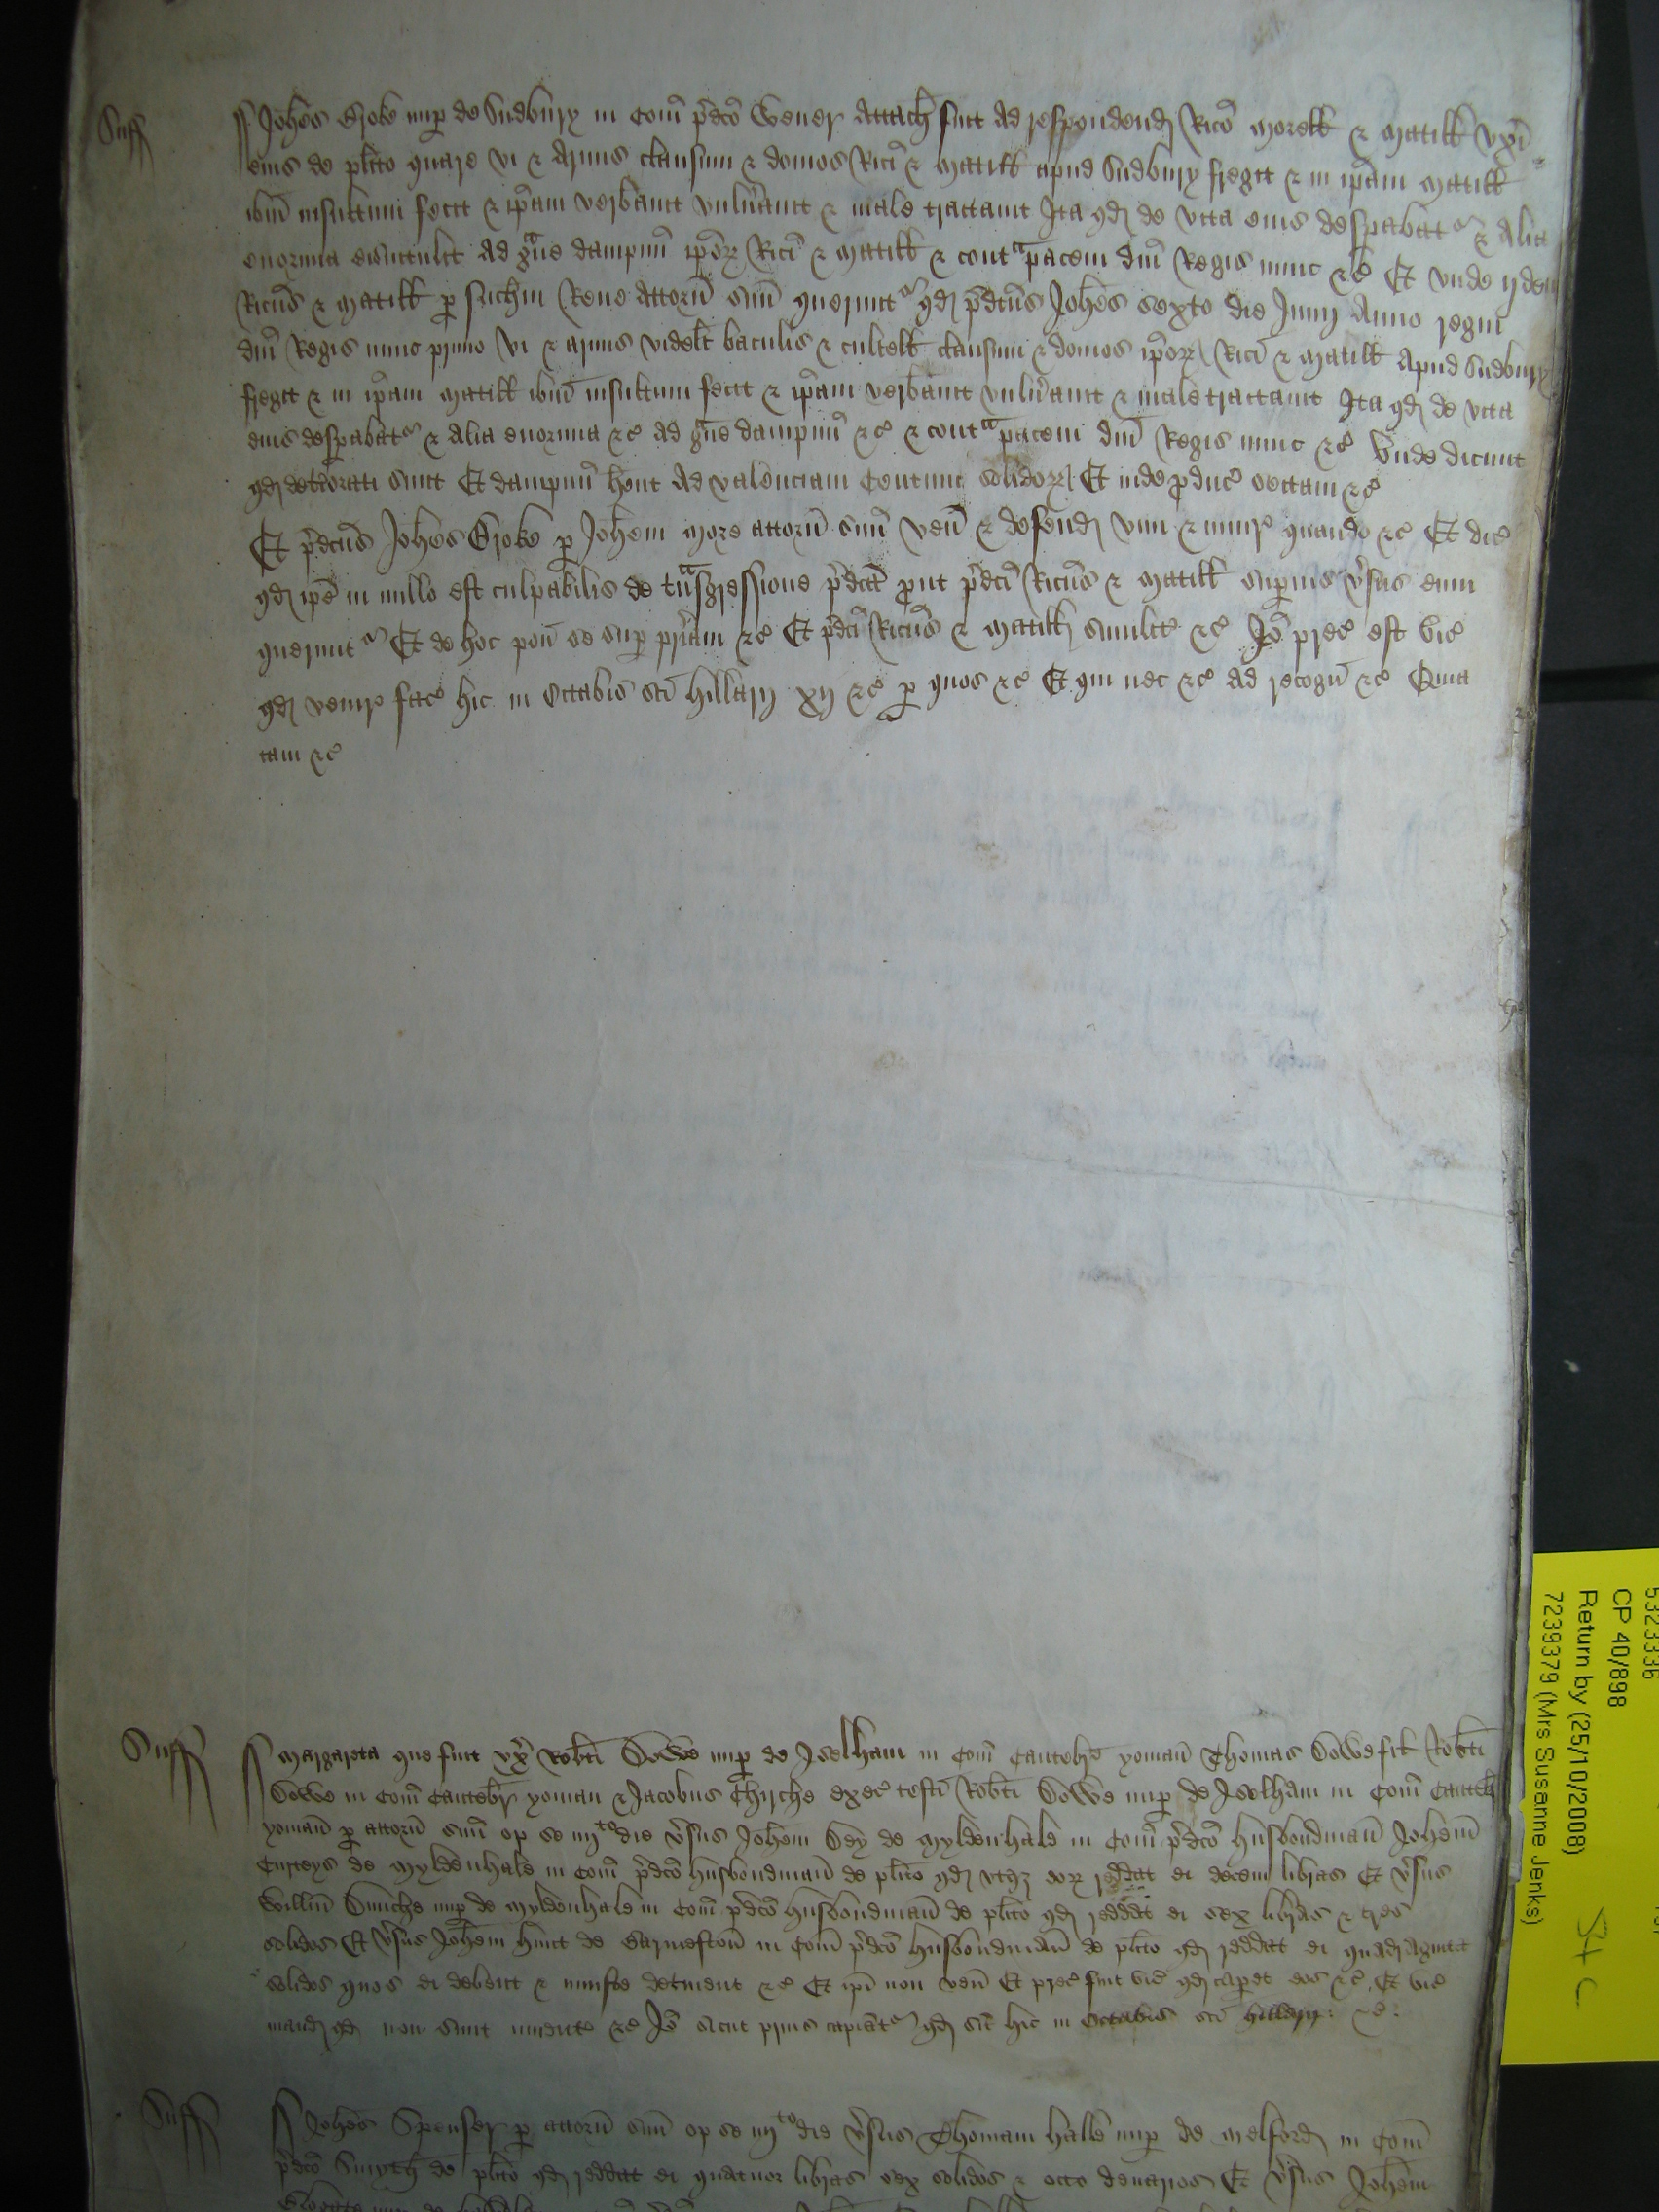 Suff
Joh̄es Croke nup̄ de Sudbury in Com̄ p̄dc̄o Wever Attach fuit Ad respondend Ric̄o Morell & Matill vx̄i
eius de pl̄ito quare vi & armis clausum & domos Ric̄i & Matill apud Sudbury fregit & in ip̄am Matill
ib̄m insultum fecit & ip̄am verb̄auit vuln̄auit & male tractauit Ita qd de vita eius desp̄abat & Alia
enormia ei intulit Ad g̃ue dampnū ip̄or Ric̄i & Matill & cont̃ pacem dn̄i Regis nunc &c̄ Et vnde ijdem
Ric̄us & Matill p̄ Attorn̄ suū querunt qd p̄dc̄us Joh̄es sexto die Junij Anno regni
dn̄i Regis nunc primo vi & armis videlt baculis & cultell clausum & domos ip̄or Ric̄i & Matill Apud Sudbury
fregit & in ip̄am Matill ib̄m insultum fecit & ip̄am verb̄auit vuln̄auit & male tractauit Ita qd de vita
eius desp̄abat & Alia enormia &c̄ ad g̃ue dampnū &c̄ & cont̃ pacem dn̄i Regis nunc &c̄ Vnde dicunt
qd det̄iorati sunt Et dampnū h̄ent Ad valenciam Centum solidor Et inde p̄duc̄ sectam &c̄
Et p̄dc̄us Joh̄es Croke p̄ Joh̄em More attorn̄ suū ven̄ & defend vim & iniur̄ quando &c̄ Et dic̄
qd ip̄e in nullo est culpabilis de t̃nsgressione p̄dc̄a prout p̄dc̄i Ric̄us & Matill sup̄ius v̄sus eum
querunt Et de hoc pon̄ se sup̄ pr̄iam &c̄ Et p̄dc̄i Ric̄us & Matill similit̄ &c̄ Jō prec̄ est vic̄
qd venire fac̄ hic in Octabis sc̄i Hillarij xij &c̄ p̄ quos &c̄ Et qui nec &c̄ Ad recogn̄ &c̄ Quia
tam &c̄
Suff
Margareta que fuit vx̄ Rob̄ti Dowe nup̄ de Iselham in Com̄ Cantebr̄ yoman̄ Thomas Dowe fil Rob̄ti
Dowe in Com̄ Cantebr̄ yoman & Jacobus Chirche exec̄ testi Rob̄ti Dowe nup̄ de Iselham in Com̄ Canteb̄
yoman̄ p̄ attorn̄ suū op se iiijto die v̄sus Joh̄em Dey de Myldenhale in Com̄ p̄dc̄o husbondman̄ Joh̄em
Curteys de Myldenhale in Com̄ p̄dc̄o husbondman̄ de pl̄ito qd vterq eor reddat ei decem libras Et v̄sus
Will̄m nup̄ de Myldenhale in Com̄ p̄dc̄o husbondman̄ de pl̄ito qd reddat ei sex libras & tres
solidos Et v̄sus Joh̄em Hunt de in Com̄ p̄dc̄o husbondman̄ de pl̄ito qd reddat ei quadraginta
solidos quos ei debent & iniuste detinent &c̄ Et ip̄i non ven̄ Et prec̄ fuit vic̄ qd caperet eos &c̄ Et vic̄
mand qd non sunt inuent̄ &c̄ Jō sicut prius capiat qd sit hic in Octabis sc̄i Hillarij &c̄
Suff
Joh̄es Spenser p̄ attorn̄ suū op se iiijto die v̄sus Thomam Halle nup̄ de Melford in Com̄
p̄dc̄o Smyth de pl̄ito qd reddat ei quatuor libras sex solidos & octo denarios Et v̄sus Joh̄em
CP 40/898
Return by (25/10/2008)
7239379 (Mrs Susanne Jenks)
34 C